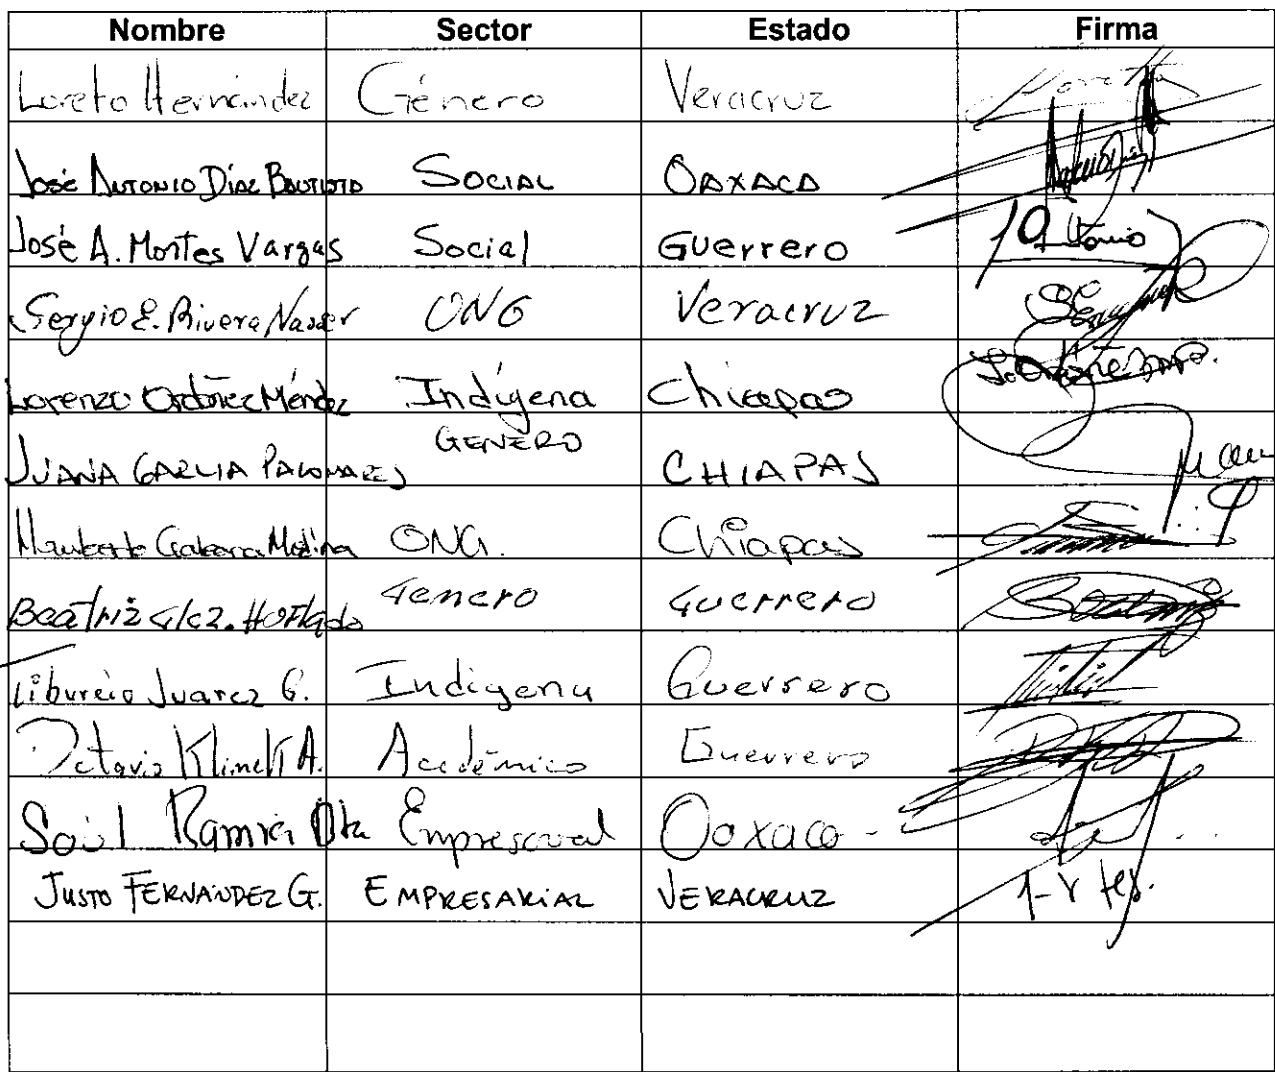 Nombre Sector Estado Firma
Loreto Hernández Género Veracruz
José Antonio Díaz Bautista Social Oaxaca
José A. Montes Vargas Social Guerrero Antonio
Sergio E. Rivera ONG Veracruz
Lorenzo Ordóñez Méndez Indígena Chiapas
JUANA GARCIA PALOMARES GENERO CHIAPAS
Molina ONG. Chiapas
Beatriz Glez. Hurtado Genero Guerrero
Tiburcio Juarez G. Indigena Guerrero
Octavio Klimek A. Académico Guerrero
Saúl Empresarial Oaxaca -
JUSTO FERNÁNDEZ G. EMPRESARIAL VERACRUZ